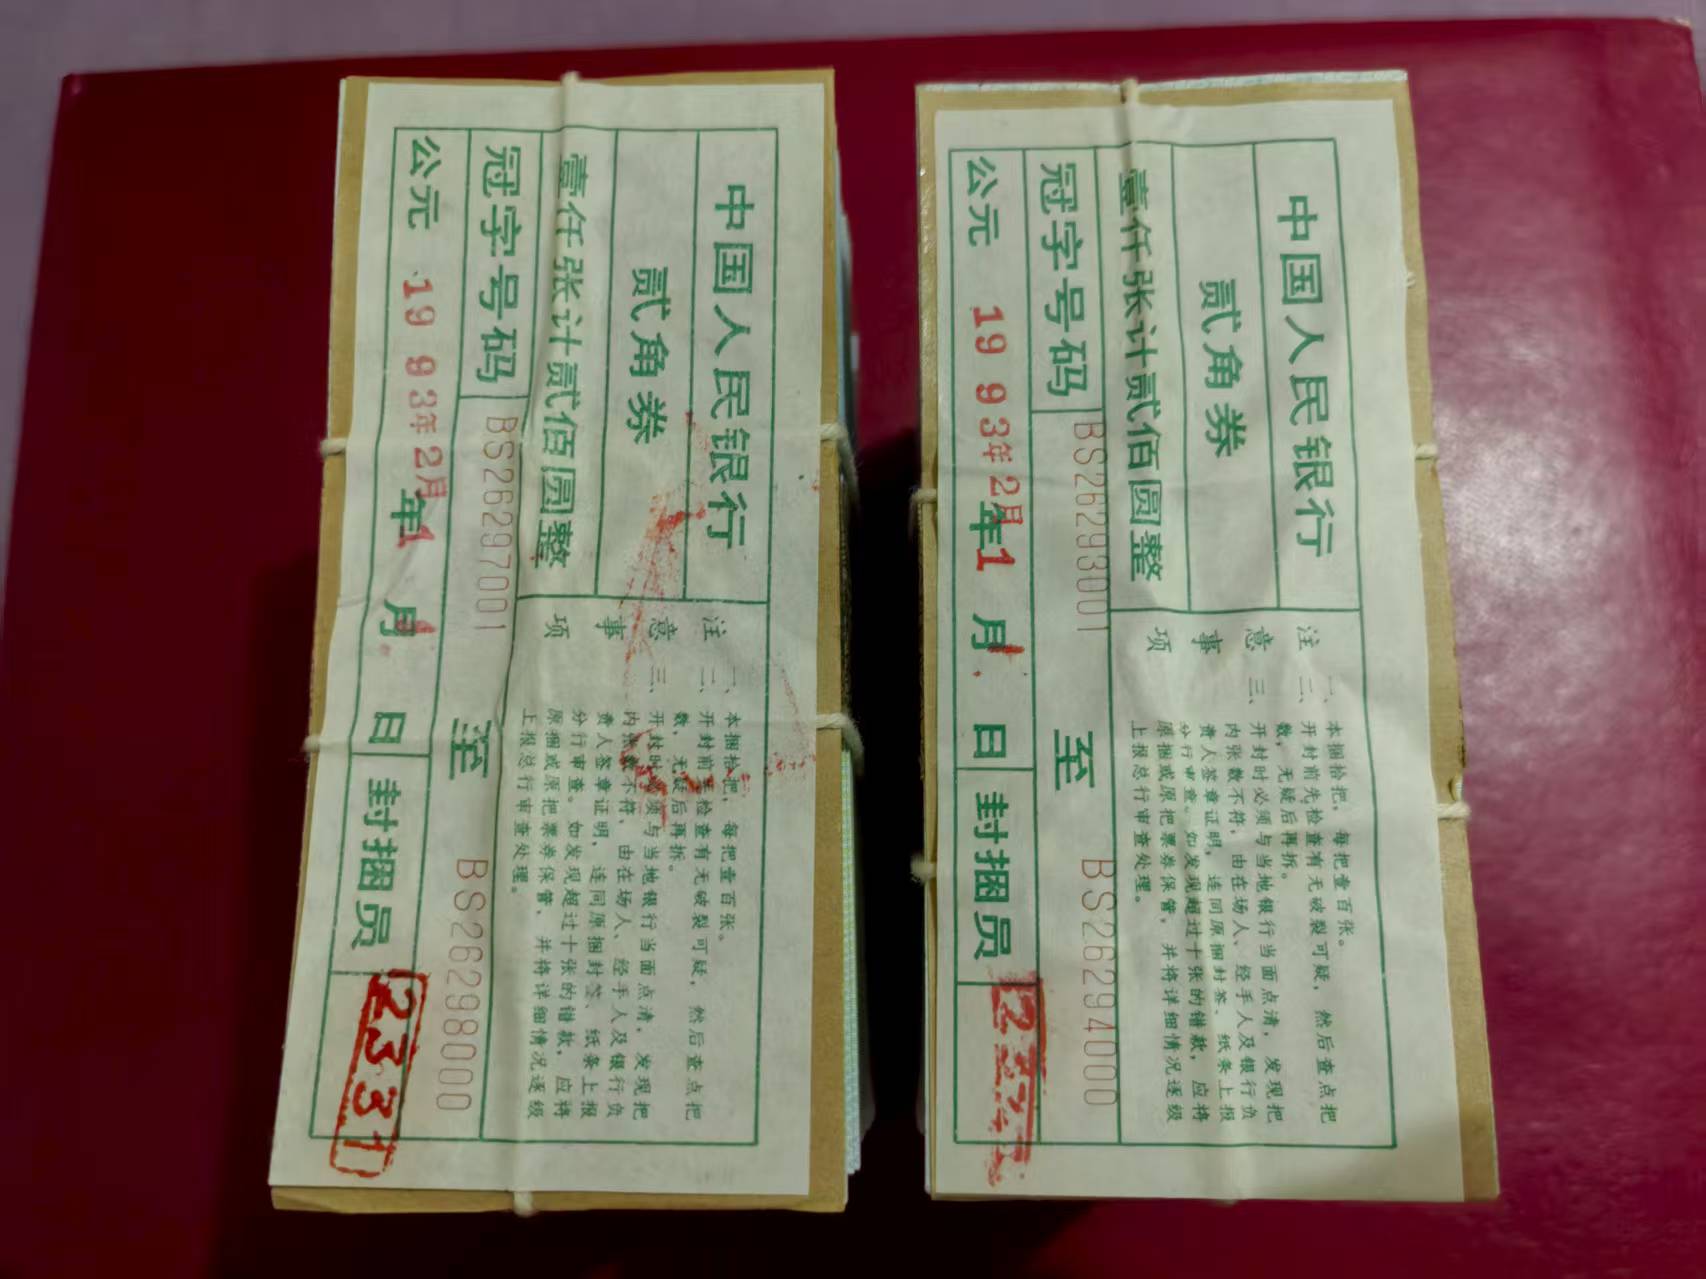 中国人民银行
贰角券
壹仟张计贰佰圆整
冠字号码 BS26297001 至 BS26298000
公元 1993年2月1 年 月 日 封捆员 2331
注意事项
一、本捆拾把，每把壹百张。
二、开封前先检查有无破裂可疑，然后查点把
数，无疑后再拆。
三、开封时必须与当地银行当面点清，发现把
内张数不符，由在场人、经手人及银行负
责人签章证明，连同原捆封签、纸条上报
分行审查。如发现超过十张的错款，应将
原捆或原把票券保管，并将详细情况逐级
上报总行审查处理。
中国人民银行
贰角券
壹仟张计贰佰圆整
冠字号码 BS26293001 至 BS26294000
公元 1993年2月1 年 月 日 封捆员
注意事项
一、本捆拾把，每把壹百张。
二、开封前先检查有无破裂可疑，然后查点把
数，无疑后再拆。
三、开封时必须与当地银行当面点清，发现把
内张数不符，由在场人、经手人及银行负
责人签章证明，连同原捆封签、纸条上报
分行审查。如发现超过十张的错款，应将
原捆或原把票券保管，并将详细情况逐级
上报总行审查处理。